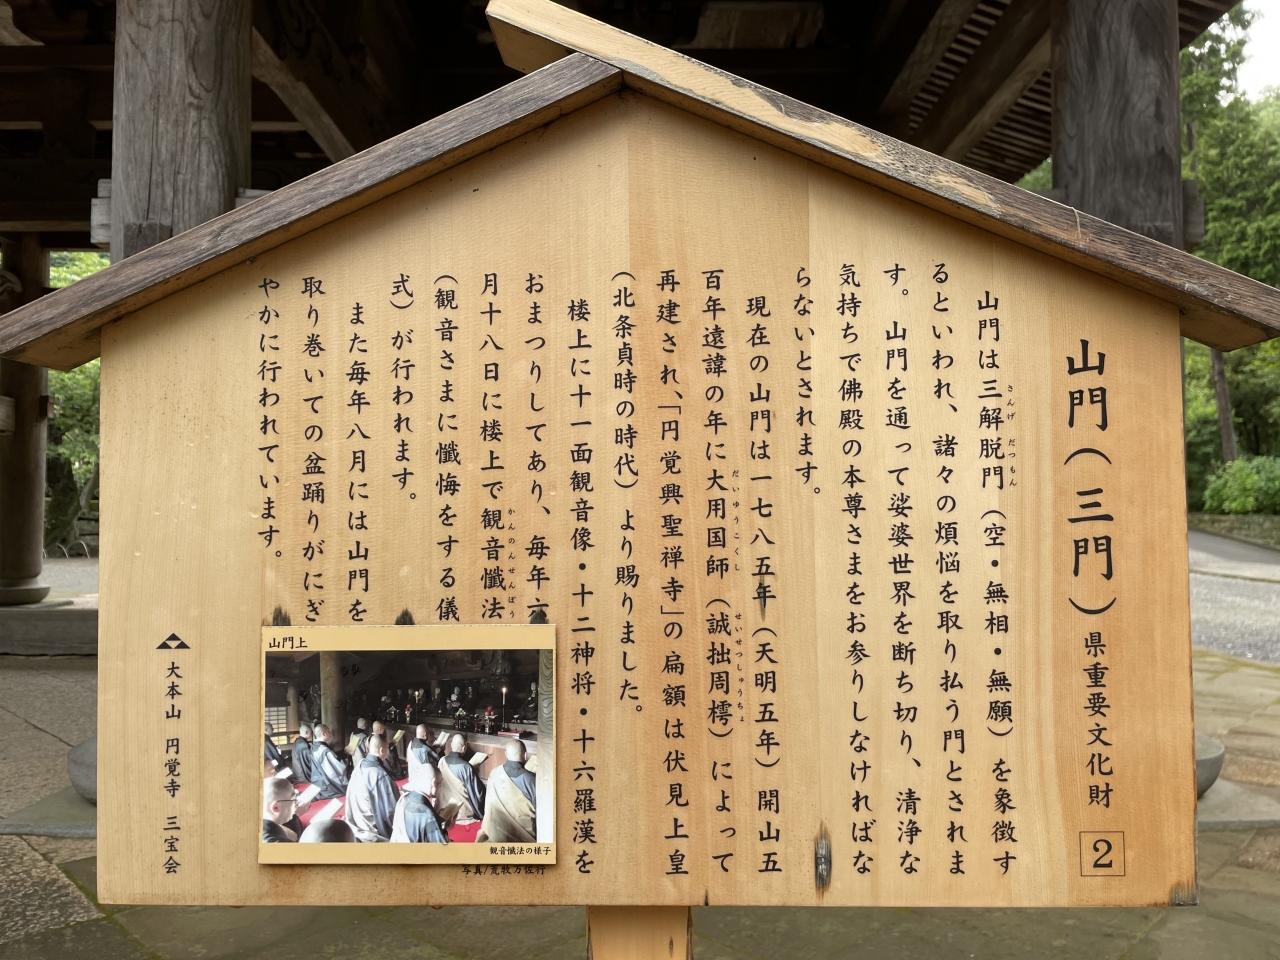 山門（三門）県重要文化財 2
山門は三解脱門（空・無相・無願）を象徴す
さんげ だつもん
るといわれ、諸々の煩悩を取り払う門とされま
す。山門を通って娑婆世界を断ち切り、清浄な
気持ちで佛殿の本尊さまをお参りしなければな
らないとされます。
現在の山門は一七八五年（天明五年）開山五
百年遠諱の年に大用国師（誠拙周樗）によって
だいゆうこくし せいせつしゅうちょ
再建され、「円覚興聖禅寺」の扁額は伏見上皇
（北条貞時の時代）より賜りました。
楼上に十一面観音像・十二神将・十六羅漢を
おまつりしてあり、毎年六
月十八日に楼上で観音懺法
かんのんせんぼう
（観音さまに懺悔をする儀
式）が行われます。
また毎年八月には山門を
取り巻いての盆踊りがにぎ
やかに行われています。
山門上
観音懺法の様子
写真/荒牧万佐行
大本山 円覚寺 三宝会